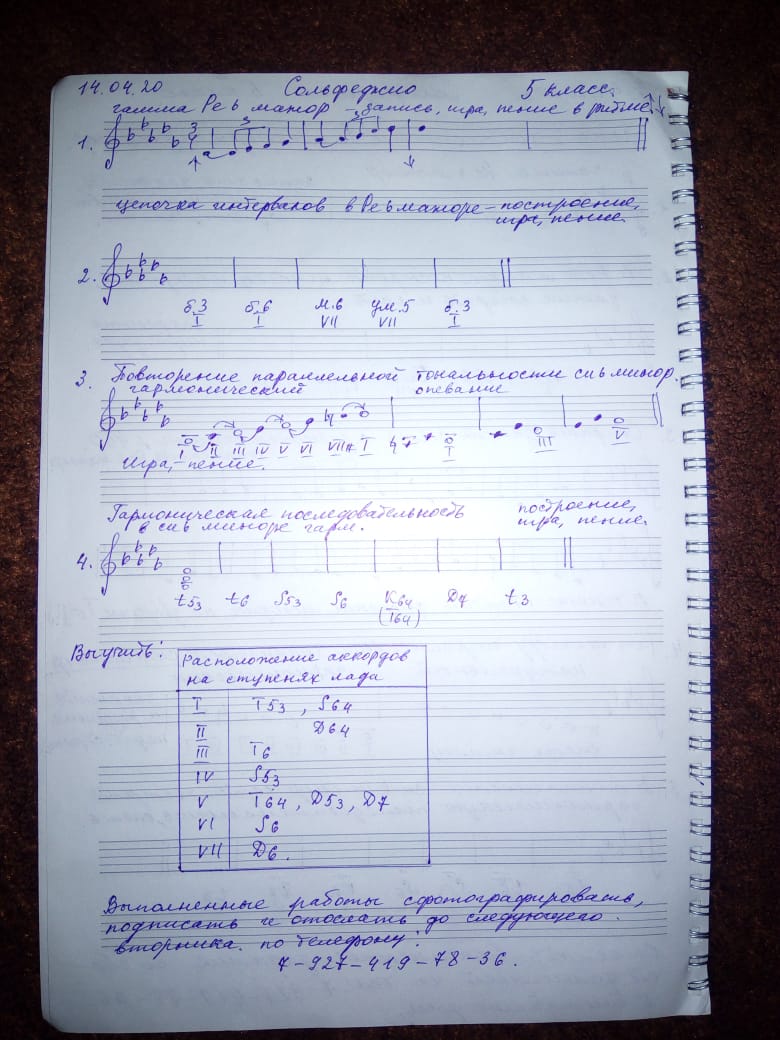 14.04.20 Сольфеджио 5 класс.
гамма Ре b мажор – запись, игра, пение в ритме ↑↓
1. 3 4 3 3
цепочка интервалов в Ре b мажоре – построение,
игра, пение.
2.
б.3 б.6 м.6 ум.5 б.3
I I VII VII I
3. Повторение параллельной тональности си b минор.
гармонический опевание
I II III IV V VI VII# I I III V
Игра, – пение.
Гармоническая последовательность построение,
в си b миноре гарм. игра, пение.
4.
t53 t6 S53 S6 K64 D7 t3
(T64)
Выучить:
Расположение аккордов
на ступенях лада
I T53, S64
II D64
III T6
IV S53
V T64, D53, D7
VI S6
VII D6.
Выполненные работы сфотографировать,
подписать и отослать до следующего
вторника. по телефону:
7-927-419-78-36.